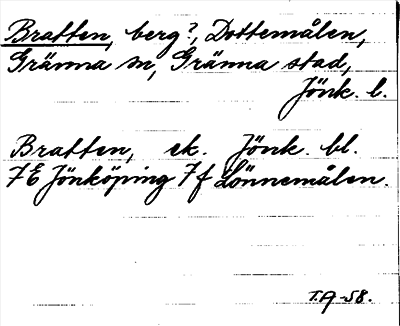 Bratten, berg?, Dottemålen,
Gränna sn, Gränna stad,
Jönk. l.
Bratten, ek. Jönk. bl.
7E Jönköping 7f Lönnemålen.
T.A-58.